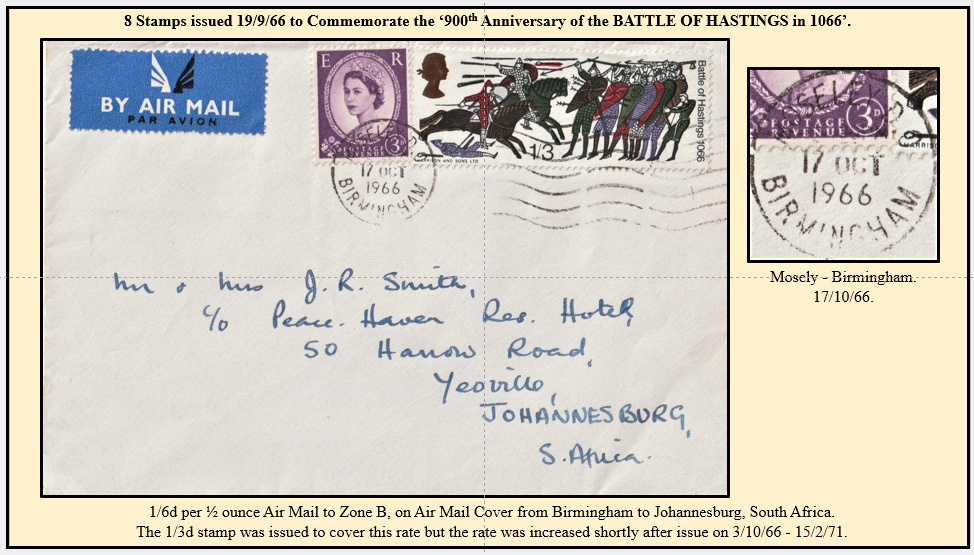 8 Stamps issued 19/9/66 to Commemorate the ‘900th Anniversary of the BATTLE OF HASTINGS in 1066’.
BY AIR MAIL
PAR AVION
E R
POSTAGE
REVENUE
3D
HARRISON AND SONS LTD
1/3
Battle of Hastings 1066
MOSELEY
17 OCT
1966
BIRMINGHAM
Mr & Mrs J. R. Smith,
c/o Peace Haven Res. Hotel,
50 Harrow Road,
Yeoville,
JOHANNESBURG,
S. Africa.
POSTAGE
REVENUE
3D
HARRIS
17 OCT
1966
BIRMINGHAM
Mosely - Birmingham.
17/10/66.
1/6d per ½ ounce Air Mail to Zone B, on Air Mail Cover from Birmingham to Johannesburg, South Africa.
The 1/3d stamp was issued to cover this rate but the rate was increased shortly after issue on 3/10/66 - 15/2/71.